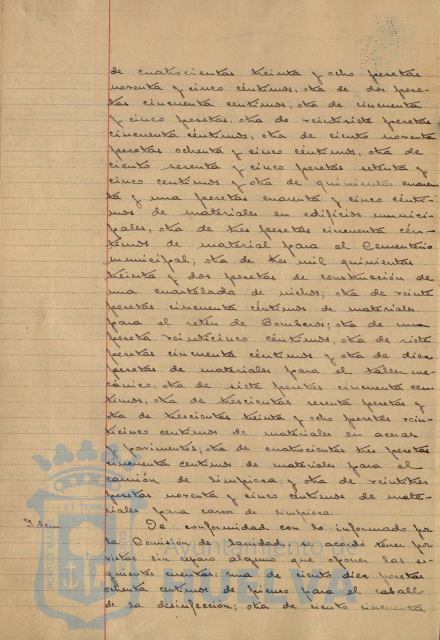 de cuatrocientas treinta y ocho pesetas
noventa y cinco céntimos, otra de dos pese-
tas cincuenta céntimos, otra de cincuenta
y cinco pesetas, otra de veintisiete pesetas
cincuenta céntimos, otra de ciento noventa
pesetas ochenta y cinco céntimos, otra de
ciento sesenta y cinco pesetas setenta y
cinco céntimos y otra de quinientas cuaren
ta y una pesetas cuarenta y cinco cénti-
mos de materiales en edificios munici-
pales, otra de tres pesetas cincuenta cén-
timos de material para el Cementerio
municipal; otra de tres mil quinientas
treinta y dos pesetas de construcción de
una cuartelada de nichos; otra de veinte
pesetas cincuenta céntimos de materiales
para el retén de Bomberos; otra de una
peseta veinticinco céntimos, otra de siete
pesetas cincuenta céntimos y otra de diez
pesetas de materiales para el taller me-
cánico, otra de siete pesetas cincuenta cén-
timos, otra de trescientas sesenta pesetas y
otra de trescientas treinta y ocho pesetas vein-
ticinco céntimos de materiales en aceras
y pavimentos; otra de cuatrocientas tres pesetas
cincuenta céntimos de materiales para el
camión de limpieza, y otra de veintitres
pesetas noventa y cinco céntimos de mate-
riales para carros de limpieza.
Idem De conformidad con lo informado por
la Comisión de Sanidad, se acordó tener por
vistas sin reparo alguno que oponer las si-
guientes cuentas: una de ciento diez pesetas
ochenta céntimos de pienso para el caballo
de la desinfección; otra de ciento cincuenta
ET TERRÆ
PORTUS MARIS
Ayuntamiento de
HUELVA